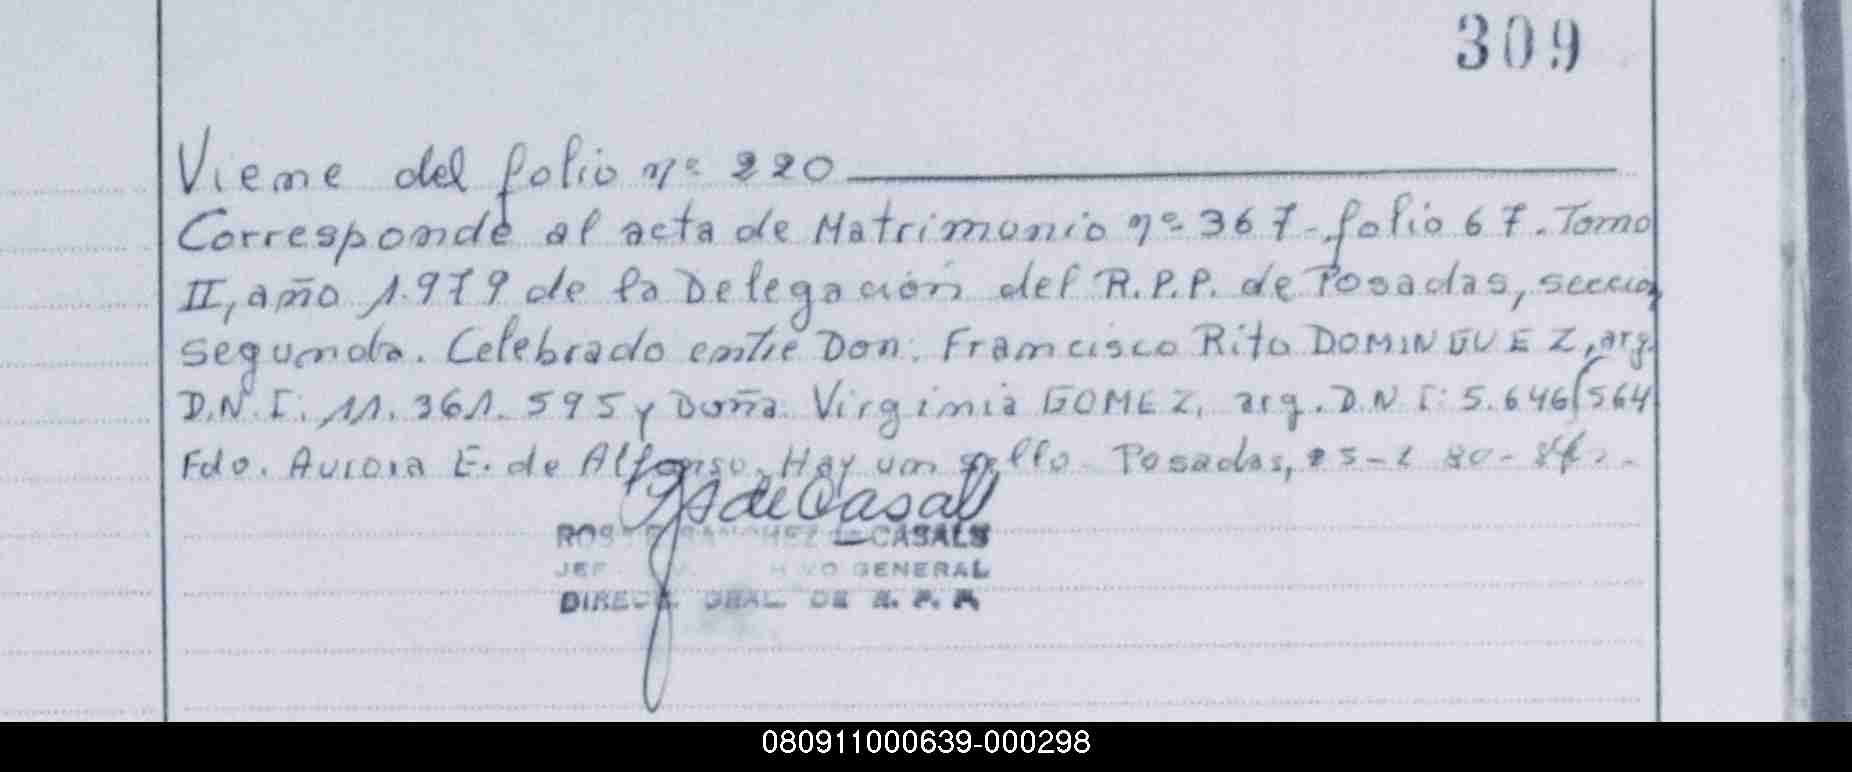 309
Viene del folio nº 220
Corresponde al acta de Matrimonio nº 367-folio 67. Tomo
II, año 1.979 de la Delegación del R.P.P. de Posadas, sección
segunda. Celebrado entre Don: Francisco Rito DOMINGUEZ, arg.
D.N.I: 11.361.595 y Doña: Virginia GOMEZ, arg. D.N.I: 5.646.564
Fdo. Aurora E. de Alfonso. Hay un sello. Posadas,
de Casals
CASALS
GENERAL
DIREC. GRAL. DE R. P. P.
080911000639-000298